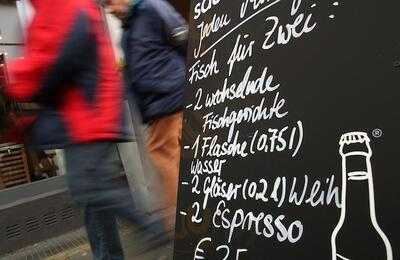 Jeden
Fisch für Zwei:
- 2 wechselnde
Fischgerichte
- 1 Flasche (0,75l)
Wasser
- 2 Gläser (0,2l) Weiß
- 2 Espresso
€ 25
®